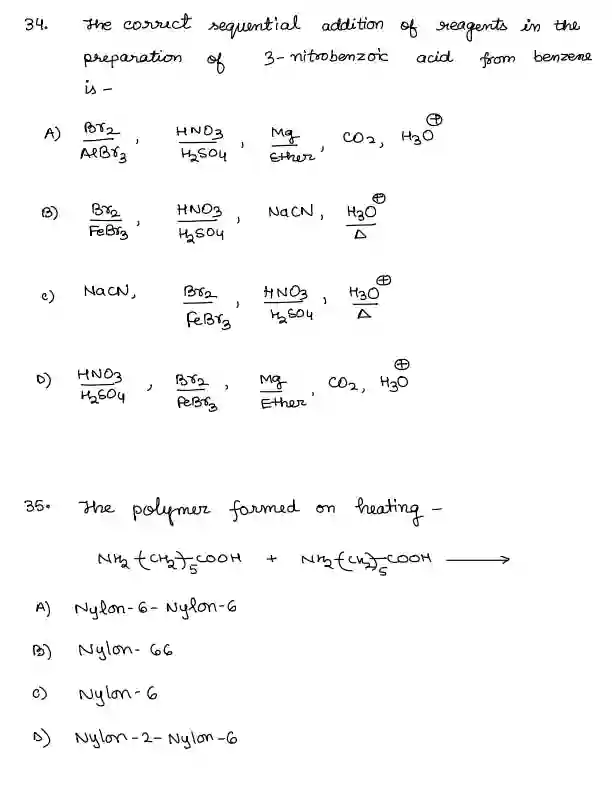 34. The correct sequential addition of reagents in the
preparation of 3-nitrobenzoic acid from benzene
is -
A) Br2/AlBr3, HNO3/H2SO4, Mg/Ether, CO2, H3O⊕
B) Br2/FeBr3, HNO3/H2SO4, NaCN, H3O⊕/Δ
c) NaCN, Br2/FeBr3, HNO3/H2SO4, H3O⊕/Δ
D) HNO3/H2SO4, Br2/FeBr3, Mg/Ether, CO2, H3O⊕
35. The polymer formed on heating -
NH2-(CH2)5-COOH + NH2-(CH2)5-COOH ⟶
A) Nylon-6-Nylon-6
B) Nylon-66
c) Nylon-6
D) Nylon-2-Nylon-6